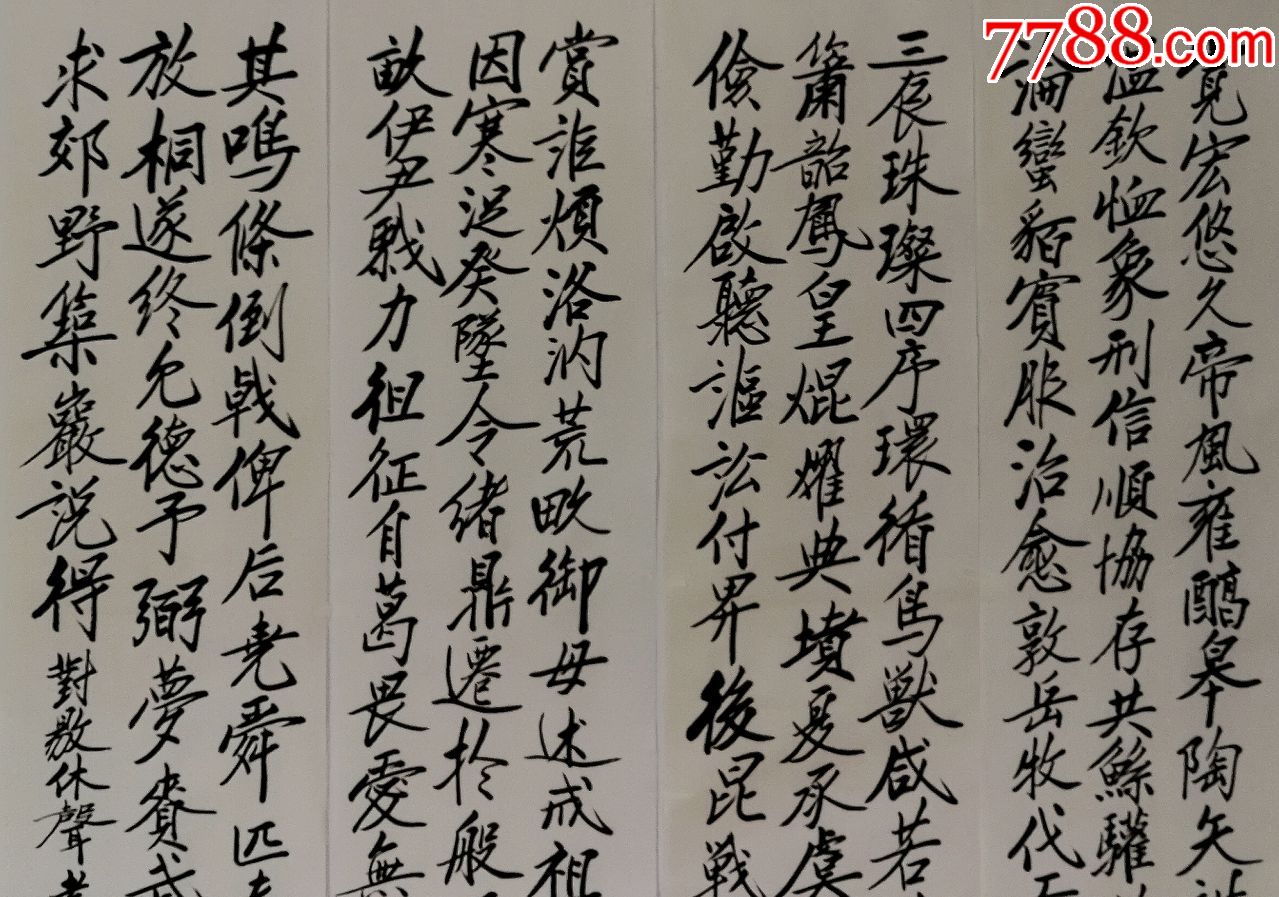 7788.com
寬宏悠久帝風雍醻皋陶矢
溫欽恤象刑信順協存共鯀驩
淪蠻貊賓服治愈敦岳牧代
三辰珠璨四序環循鳥獸咸若
簫韶鳳皇焜耀典墳夏承虞
儉勤啟聽謳訟付畀後昆戰
賞誑煩洛汭荒畋御母述戒祖
因寒浞癸墜令緒鼎遷於般
畝伊尹戮力徂征自葛畏愛無
其鳴條倒戟俾后堯舜匹
放桐遂終允德予弼夢賚
求郊野築巖説得對敭休聲